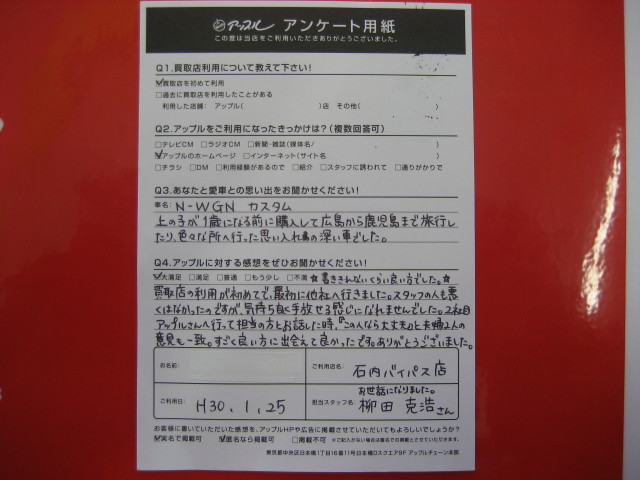 アップル アンケート用紙
この度は当店をご利用いただきありがとうございました。
Q1.買取店利用について教えて下さい!
☑買取店を初めて利用
□過去に買取店を利用したことがある
利用した店舗: アップル( )店 その他( )
Q2.アップルをご利用になったきっかけは?(複数回答可)
□テレビCM □ラジオCM □新聞・雑誌(媒体名/ )
☑アップルのホームページ □インターネット(サイト名 )
□チラシ □DM □利用経験があるので □紹介 □スタッフに誘われて □通りがかりで
Q3.あなたと愛車との思い出をお聞かせください!
車名: N-WGN カスタム
上の子が1歳になる前に購入して広島から鹿児島まで旅行し
たり、色々な所へ行った思い入れの深い車でした。
Q4.アップルに対する感想をぜひお聞かせください!
☑大満足 □満足 □普通 □もう少し □不満 ☆書ききれないくらい良い方でした。☆
買取店の利用が初めてで、最初に他社へ行きました。スタッフの人も悪
くはなかったのですが、気持ち良く手放せる感じになれませんでした。2社目
アップルさんへ行って担当の方とお話した時、『この人なら大丈夫』と夫婦2人の
意見も一致。すごく良い方に出会えて良かったです。ありがとうございました。
お名前:
ご利用店名: 石内バイパス店
ご利用日: H30.1.25
お世話になりました。
担当スタッフ名: 柳田 克浩さん
お客様に書いていただいた感想を、アップルHPや広告に掲載させていただいてもよろしいでしょうか?
☑実名で掲載可 ☑匿名なら掲載可 □掲載不可 ※ご記入がない場合は匿名での掲載とさせていただきます。
東京都中央区日本橋1丁目16番11号日本橋Dスクエア8F アップルチェーン本部